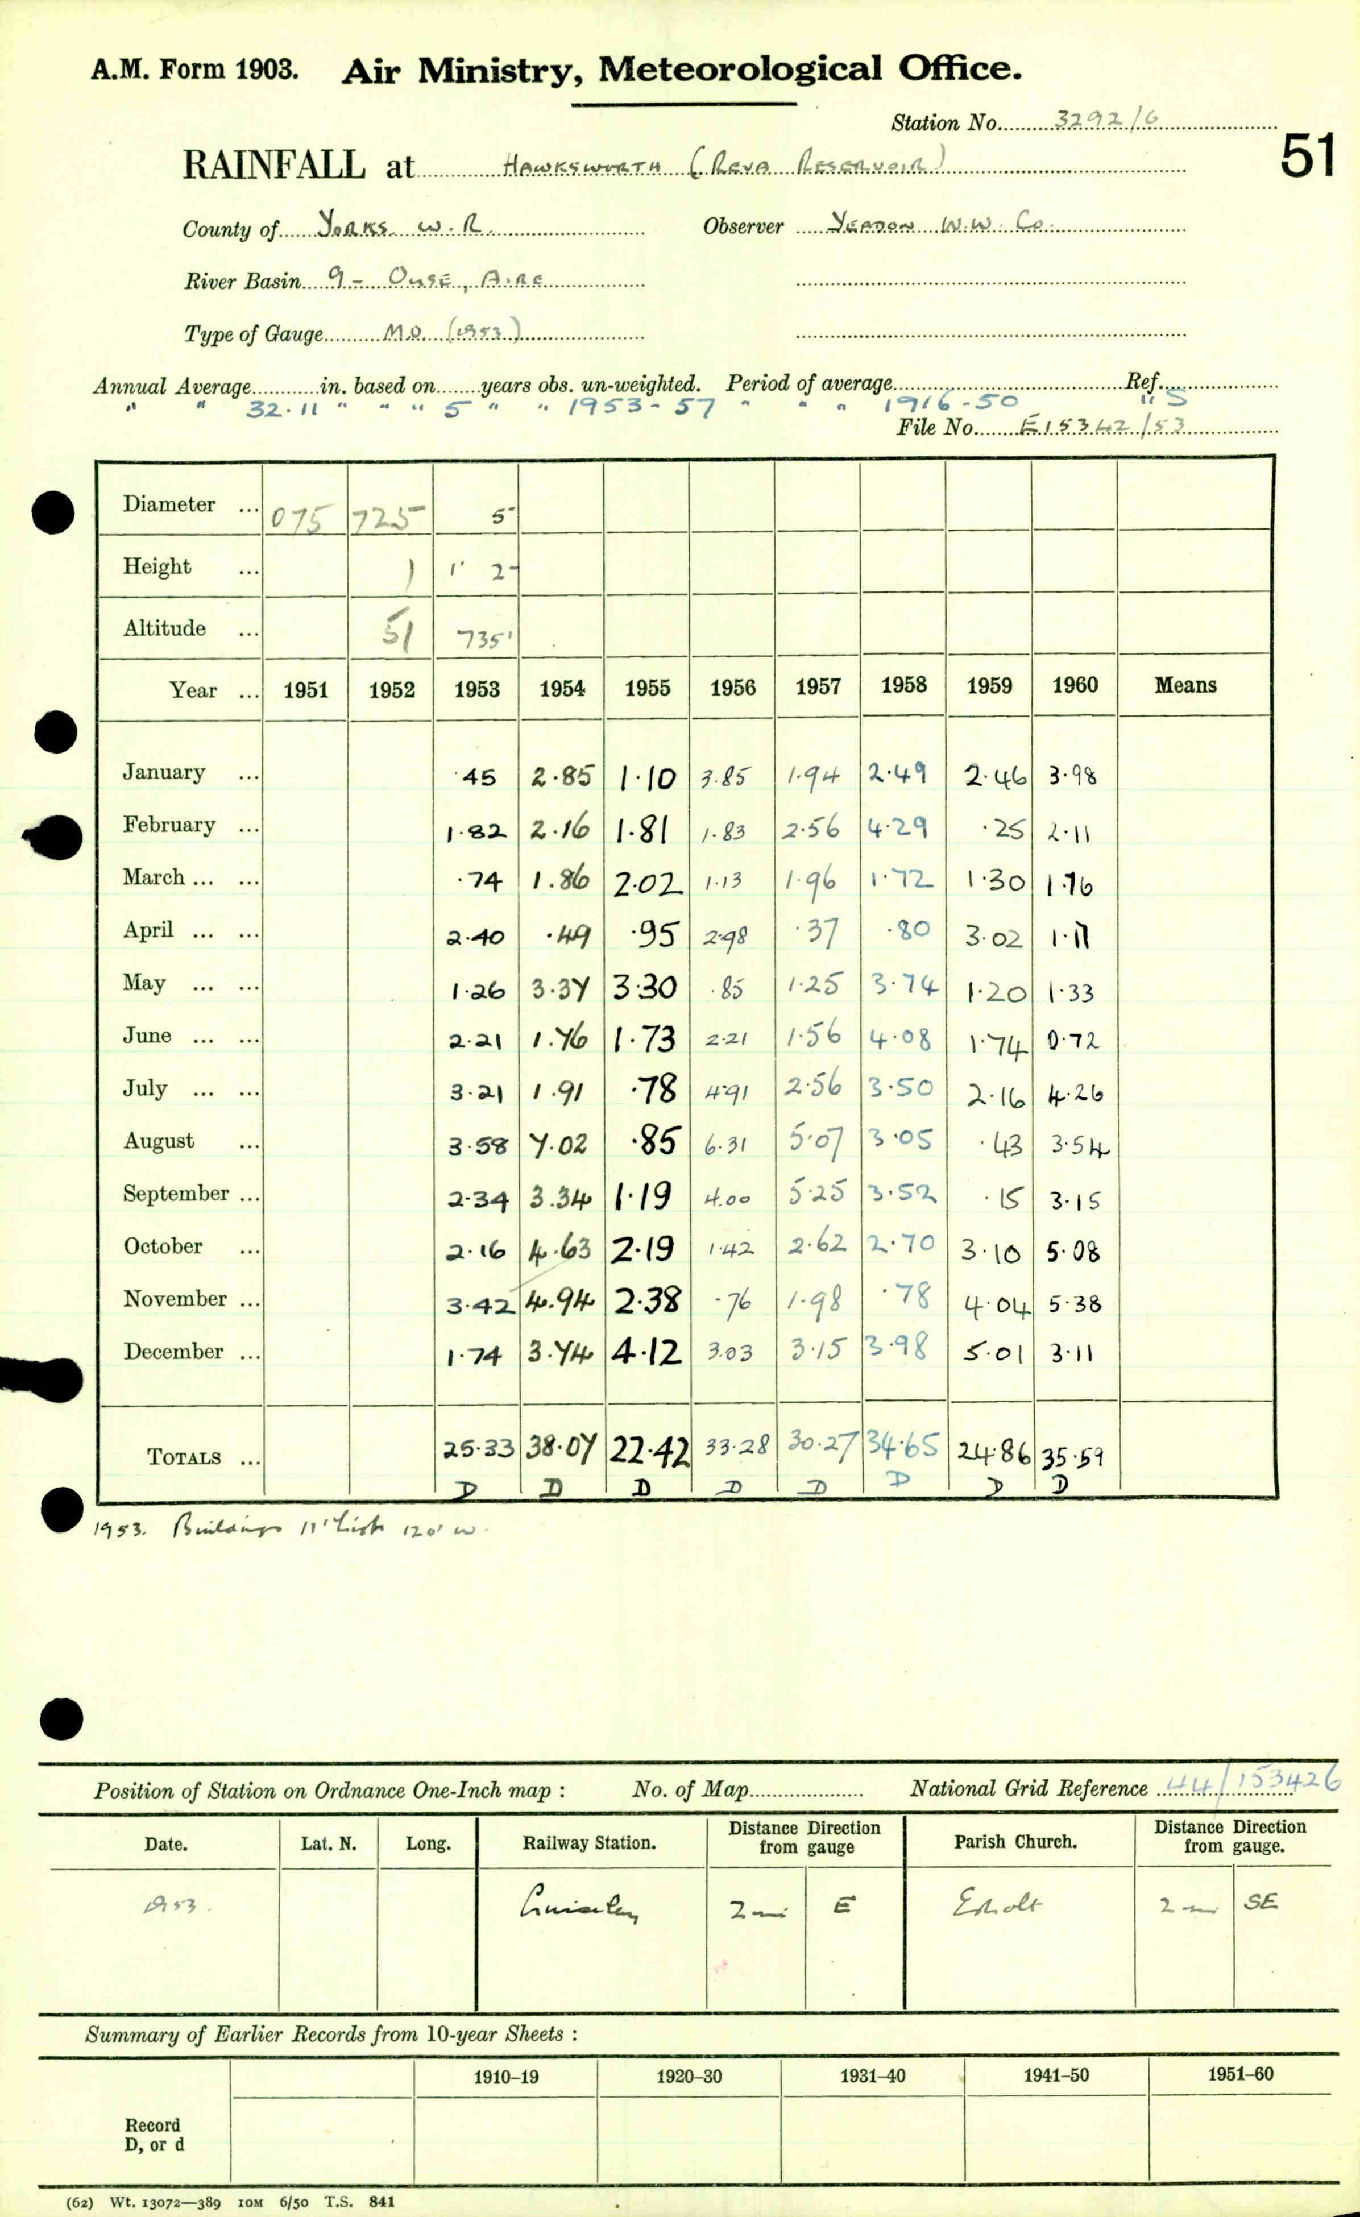 A.M. Form 1903. Air Ministry, Meteorological Office.
Station No. 3292/6
51
RAINFALL at HAWKSWORTH (REVA RESERVOIR)
County of YORKS. W.R. Observer YEADON W.W. Co.
River Basin 9 - OUSE, AIRE
Type of Gauge M.O. (1953)
Annual Average in. based on years obs. un-weighted. Period of average Ref.
" " 32.11 " " " 5 " " 1953-57 " " " 1916-50 " S
File No. E15342/53
Diameter ... 075 725 5"
Height ... 1 1' 2"
Altitude ... 51 735'
Year ... 1951 1952 1953 1954 1955 1956 1957 1958 1959 1960 Means
January ... .45 2.85 1.10 3.85 1.94 2.49 2.46 3.98
February ... 1.82 2.16 1.81 1.83 2.56 4.29 .25 2.11
March ... ... .74 1.86 2.02 1.13 1.96 1.72 1.30 1.76
April ... ... 2.40 .49 .95 2.98 .37 .80 3.02 1.17
May ... ... 1.26 3.37 3.30 .85 1.25 3.74 1.20 1.33
June ... ... 2.21 1.76 1.73 2.21 1.56 4.08 1.74 0.72
July ... ... 3.21 1.91 .78 4.91 2.56 3.50 2.16 4.26
August ... 3.58 7.02 .85 6.31 5.07 3.05 .43 3.54
September ... 2.34 3.34 1.19 4.00 5.25 3.52 .15 3.15
October ... 2.16 4.63 2.19 1.42 2.62 2.70 3.10 5.08
November ... 3.42 4.94 2.38 .76 1.98 .78 4.04 5.38
December ... 1.74 3.74 4.12 3.03 3.15 3.98 5.01 3.11
TOTALS ... 25.33 38.07 22.42 33.28 30.27 34.65 24.86 35.59
D D D D D D D D
1953. Buildings 11' high 120' W.
Position of Station on Ordnance One-Inch map : No. of Map National Grid Reference 44/153426
Date. Lat. N. Long. Railway Station. Distance from gauge Direction Parish Church. Distance from gauge. Direction
1953. Guiseley 2 mi E Esholt 2 mi SE
Summary of Earlier Records from 10-year Sheets :
1910–19 1920–30 1931–40 1941–50 1951–60
Record
D, or d
(62) Wt. 13072—389 10M 6/50 T.S. 841